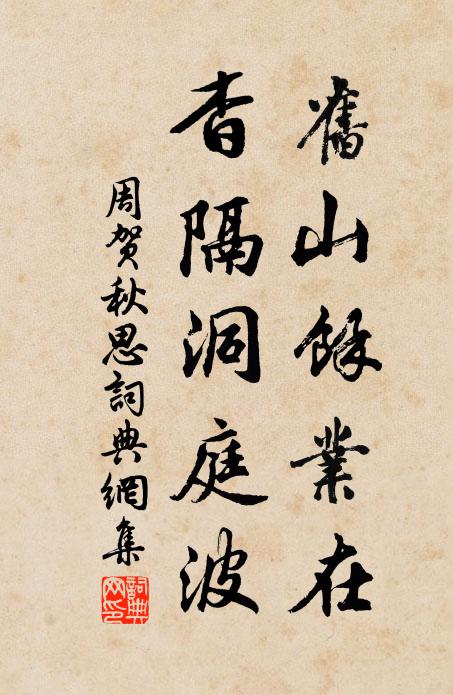 舊山餘業在
杳隔洞庭波
周贺秋思詞典網集
詞典
网印